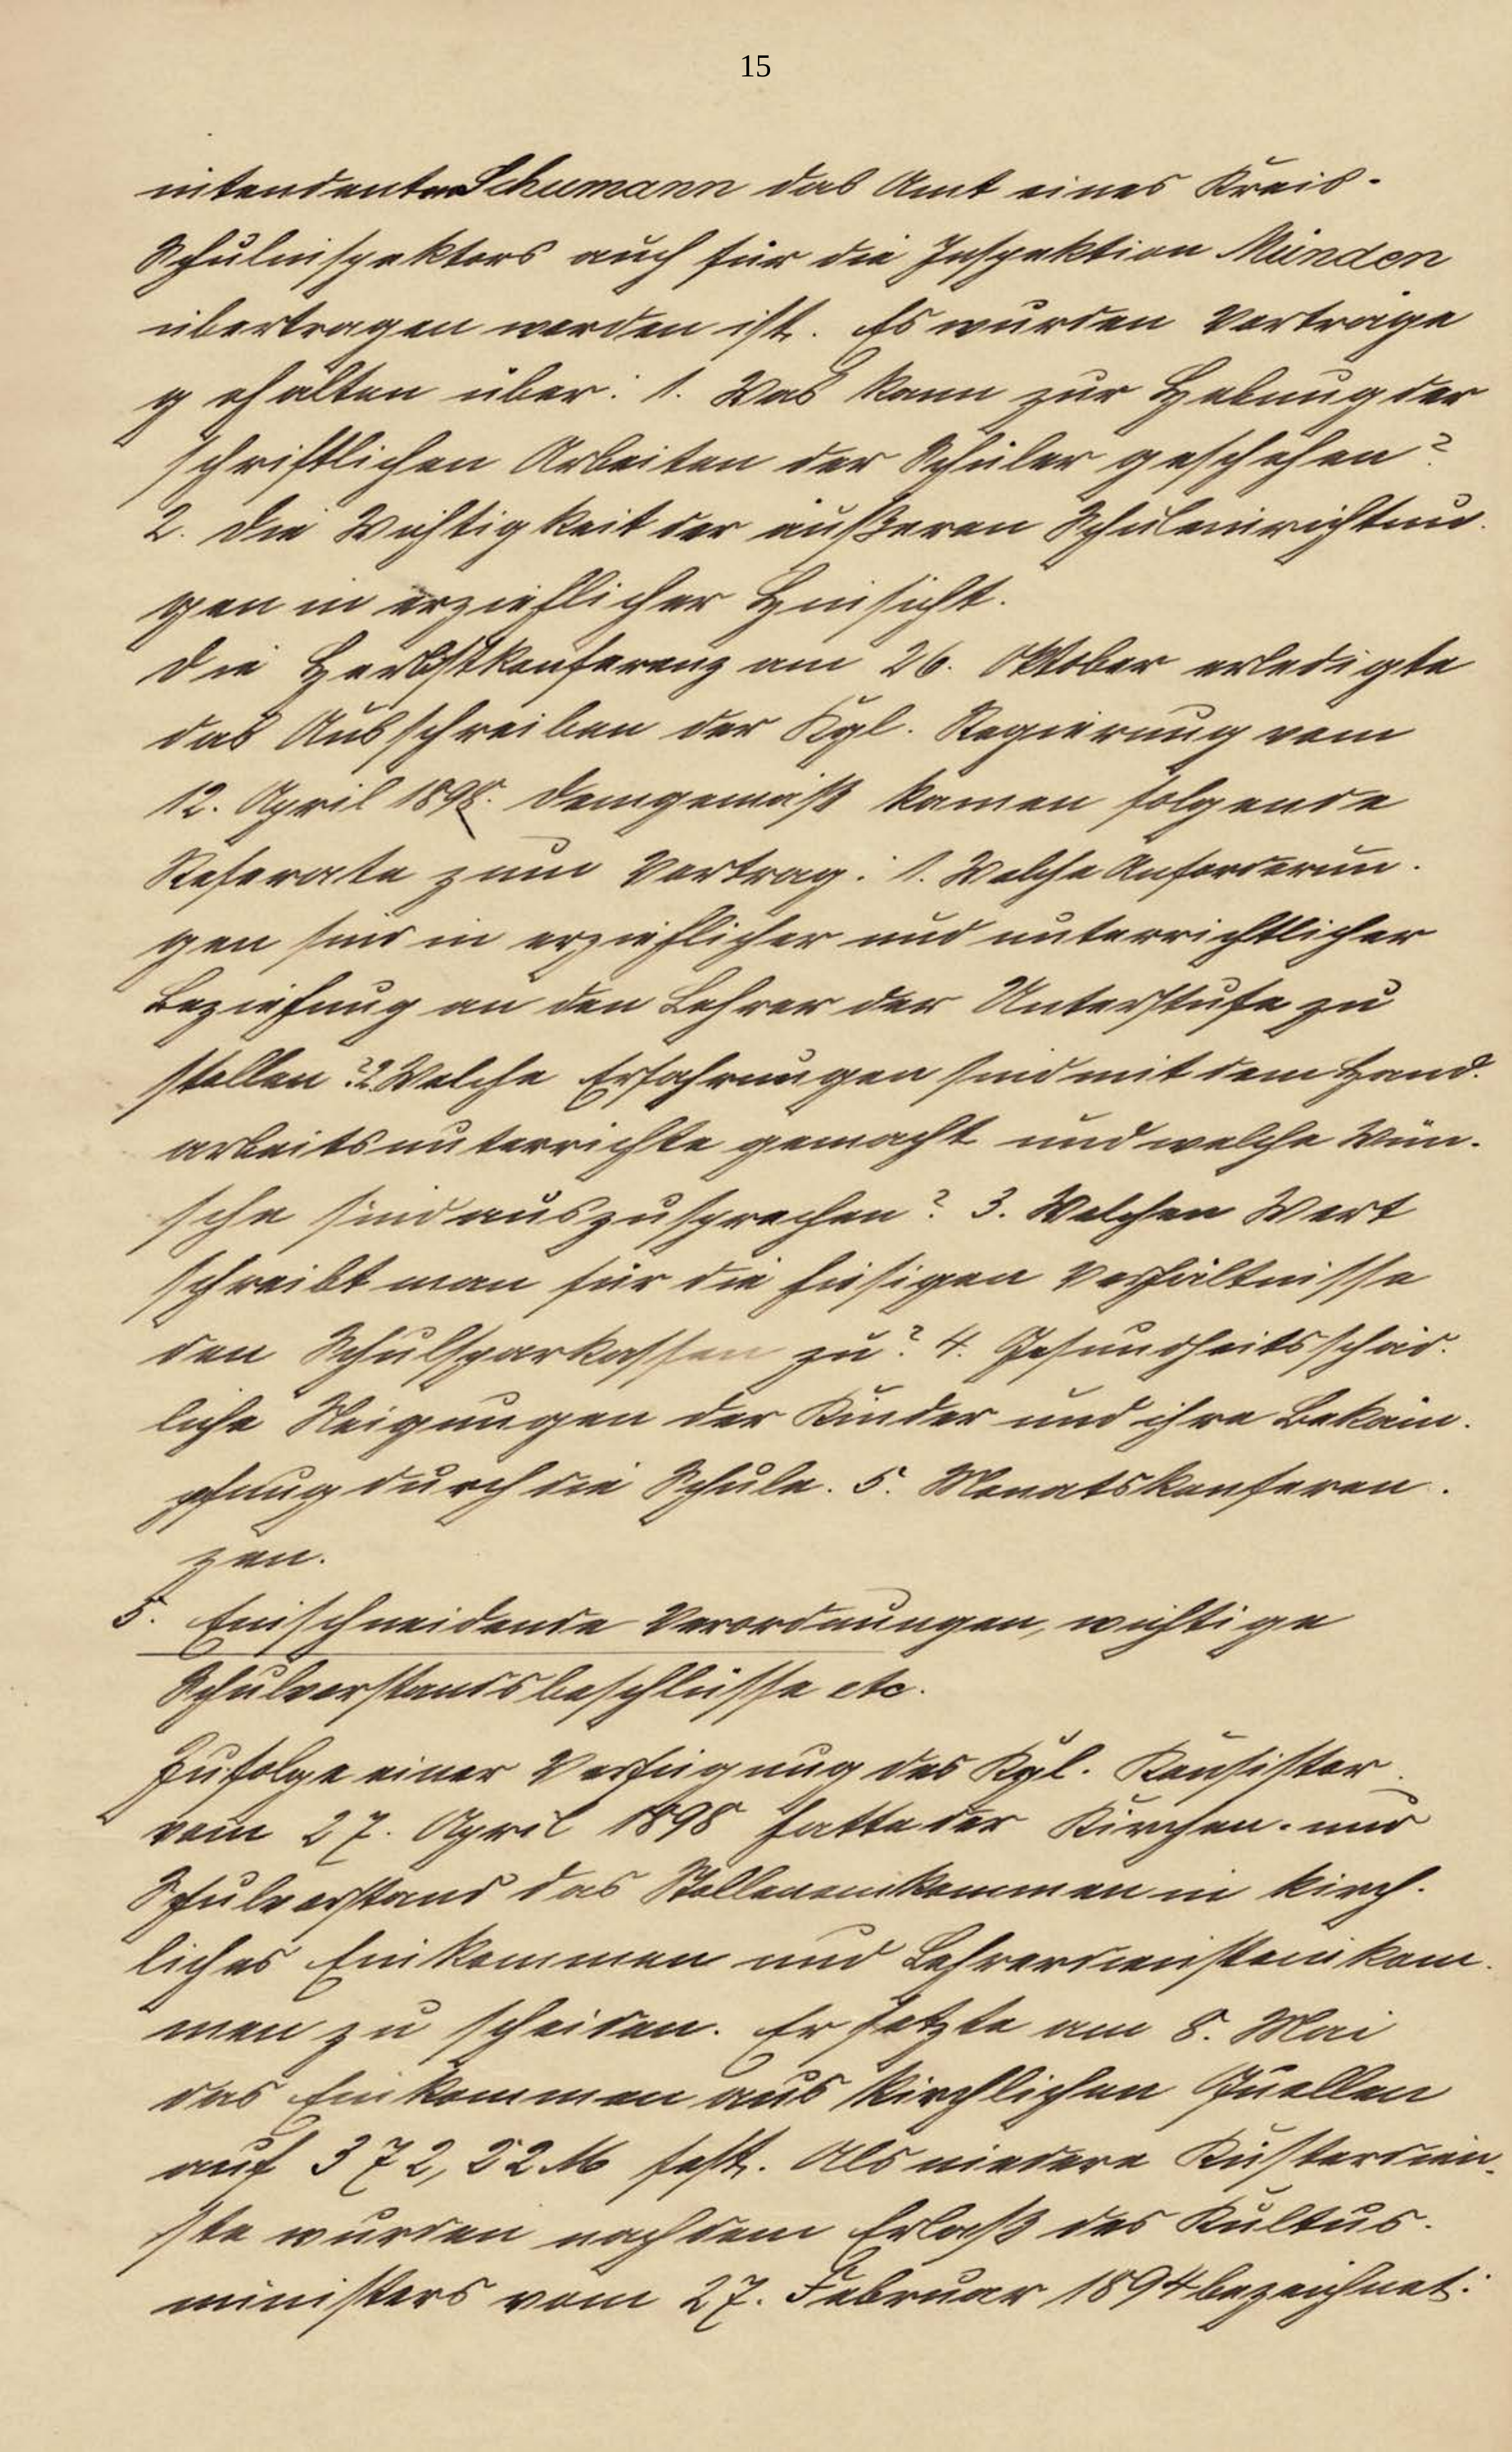 15
intendenten Schumann das Amt eines Kreis-
Schulinspektors auch für die Inspektion Münden
übertragen worden ist. Es wurden Vorträge
gehalten über: 1. Was kann zur Hebung der
schriftlichen Arbeiten der Schüler geschehen?
2. Die Wichtigkeit der äußeren Schuleinrichtun-
gen in erziehlicher Hinsicht.
Die Herbstkonferenz am 26. Oktober erledigte
das Ausschreiben der Kgl. Regierung vom
12. April 1898. Demgemäß kamen folgende
Referate zum Vortrag: 1. Welche Anforderun-
gen sind in erziehlicher und unterrichtlicher
Beziehung an den Lehrer der Unterstufe zu
stellen? 2. Welche Erfahrungen sind mit dem Hand-
arbeitsunterrichte gemacht und welche Wün-
sche sind auszusprechen? 3. Welchen Wert
schreibt man für die hiesigen Verhältnisse
den Schulsparkassen zu? 4. Gesundheitsschäd-
liche Neigungen der Kinder und ihre Bekäm-
pfung durch die Schule. 5. Monatskonferen-
zen.
5. Einschneidende Verordnungen, wichtige
Schulvorstandsbeschlüsse etc.
Zufolge einer Verfügung des Kgl. Konsistor.
vom 27. April 1898 hatte der Kirchen- und
Schulvorstand das Stelleneinkommen in kirch-
liches Einkommen und Lehrerdiensteinkom-
men zu scheiden. Er setzte am 8. Mai
das Einkommen aus kirchlichen Quellen
auf 372,22 M fest. Als niedere Küsterdien-
ste wurden nach dem Erlaß des Kultus-
ministers vom 27. Februar 1894 bezeichnet: